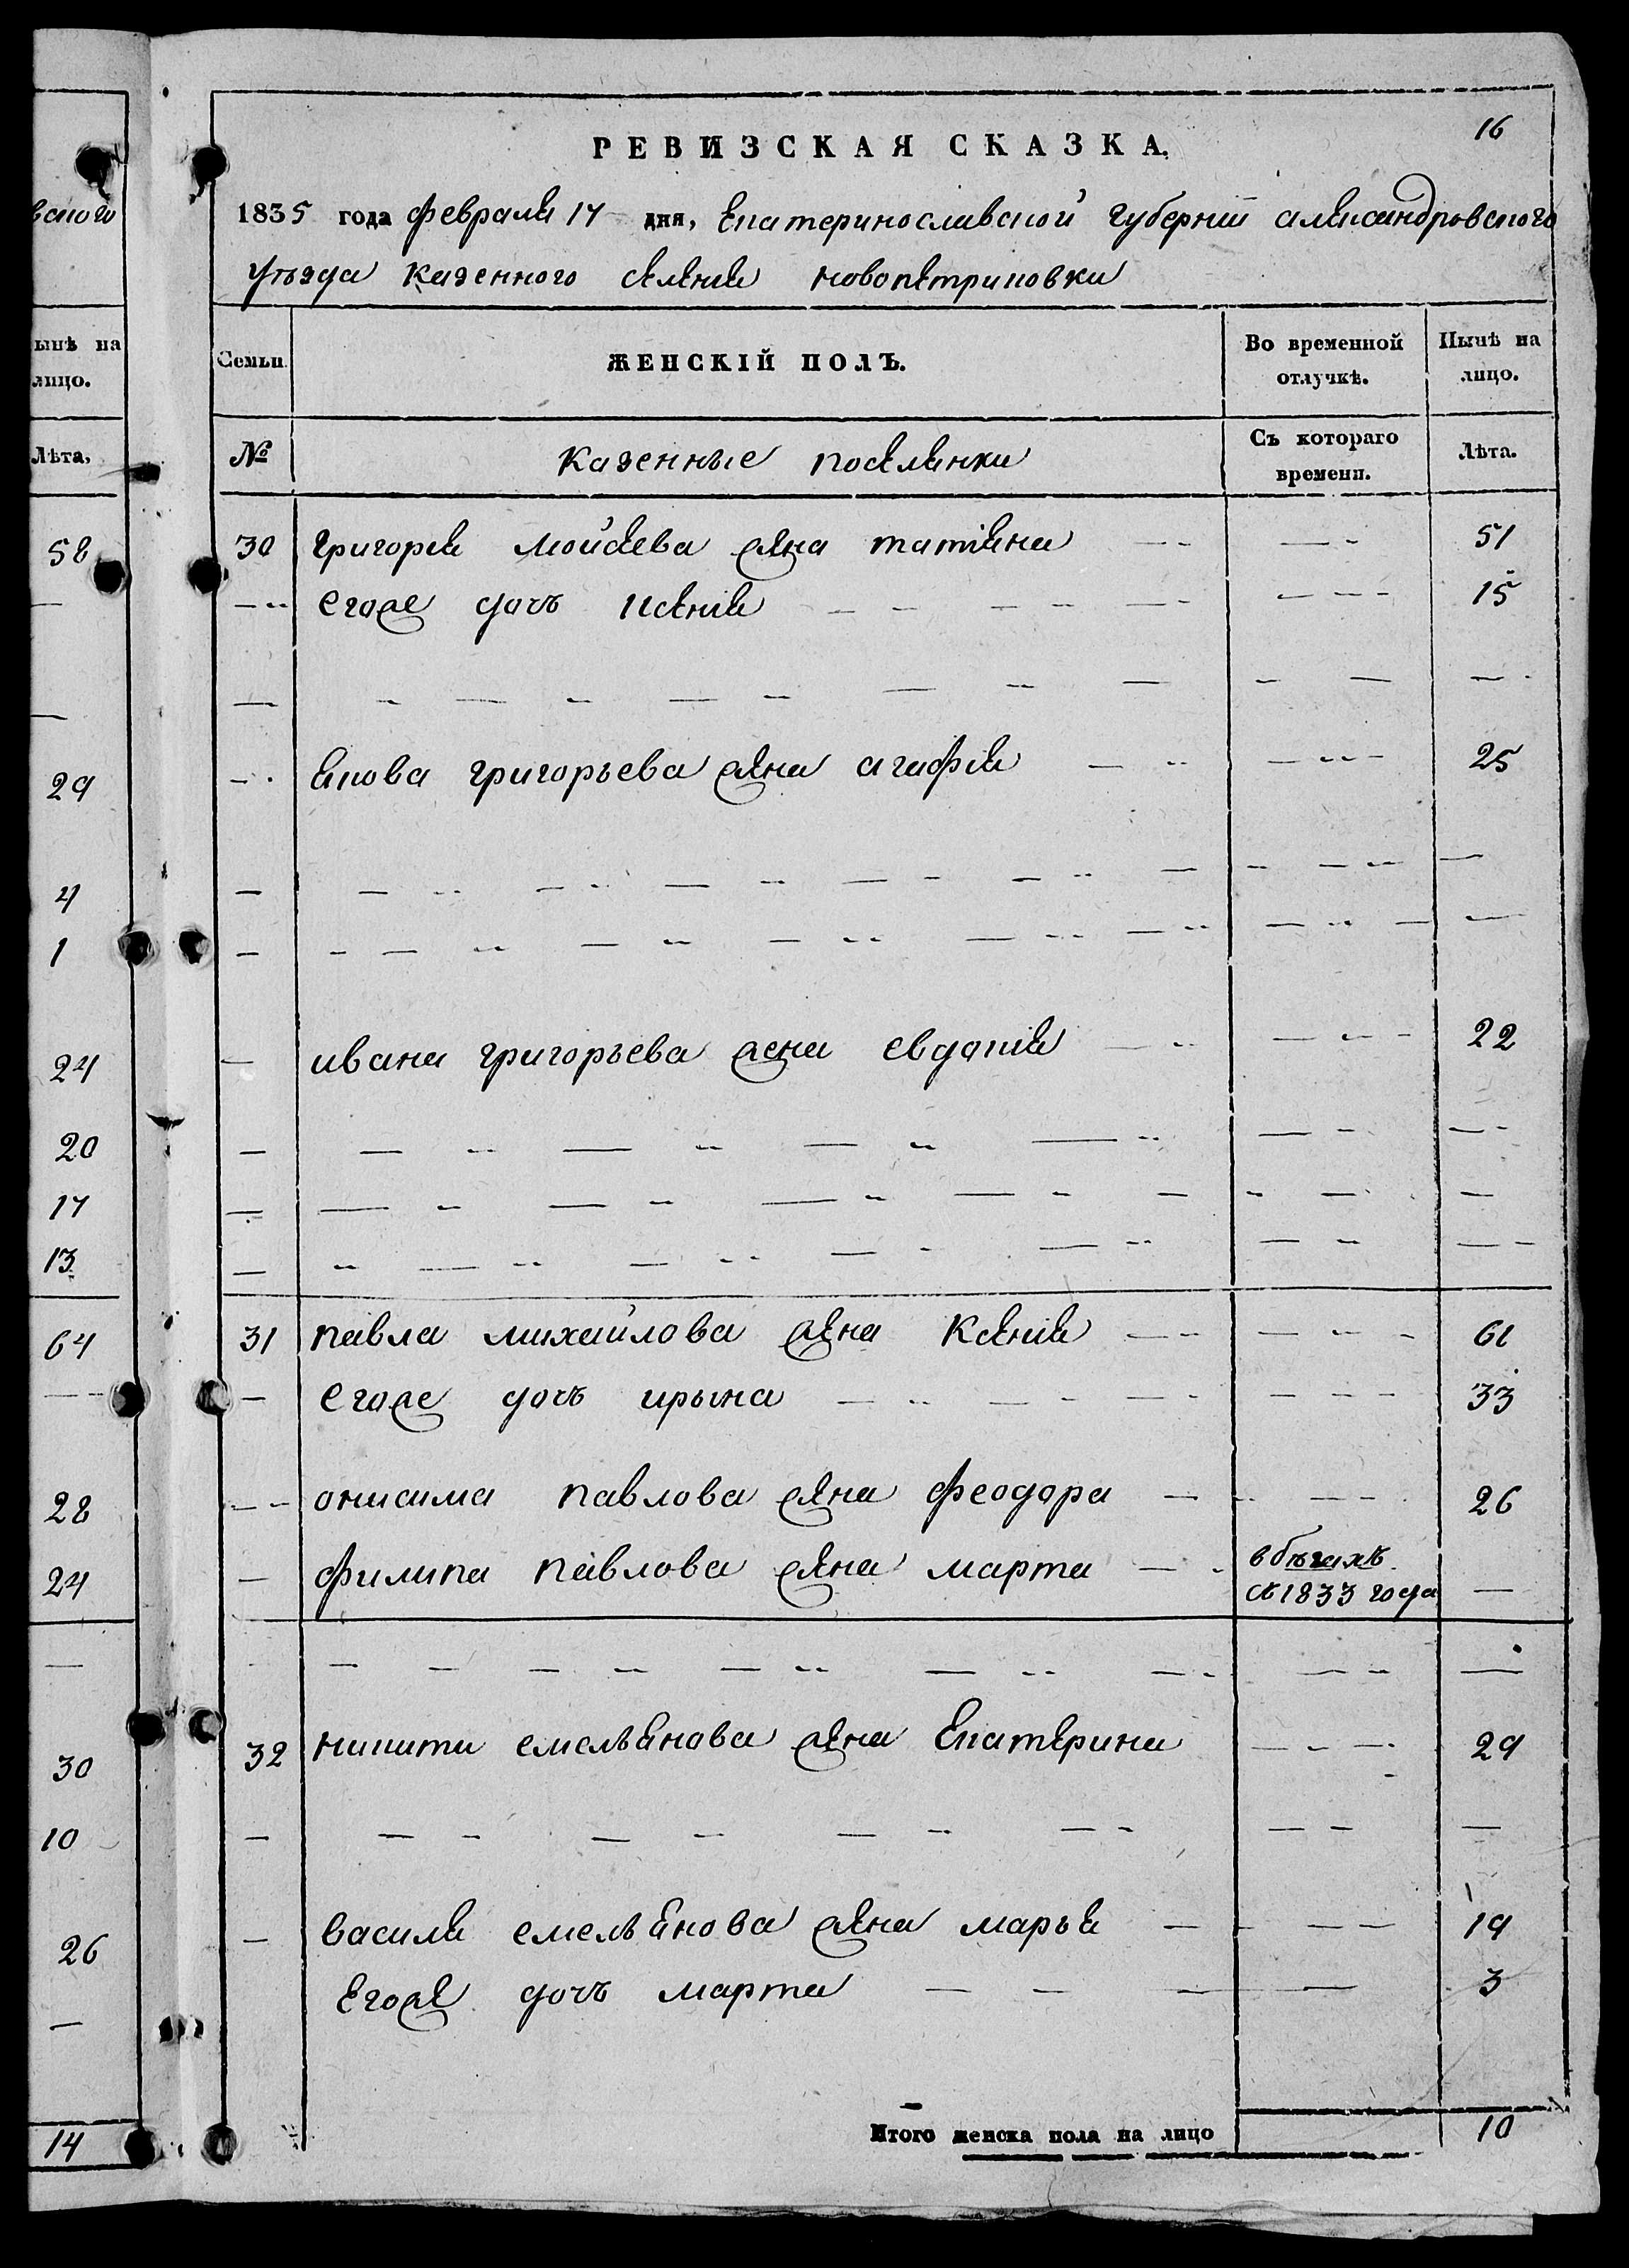 вского
ынѣ на
лицо.
Лѣта,
58
29
4
1
24
20
17
13
64
28
24
30
10
26
14
16
РЕВИЗСКАЯ СКАЗКА.
1835 года февраля 17 дня, Екатеринославской губернии александровского
уѣзда казенного селения новопетриковки
Семьи.
ЖЕНСКІЙ ПОЛЪ.
Во временной отлучкѣ.
Нынѣ на лицо.
№
казенные поселянки
Съ котораго времени.
Лѣта.
30 григорея мойсеева жена татіяна 51
егоже дочь ксенія 15
якова григорьева жена агафія 25
ивана григорьева жена евдокія 22
31 павла михайлова жена ксенія 61
егоже дочь ирына 33
онисима павлова жена феодора 26
филипа павлова жена марта в бѣгахъ
съ 1833 года
32 никиты емельянова жена Екатерина 29
василя емельянова жена марья 19
Егоже дочь марта 3
Итого женска пола на лицо 10